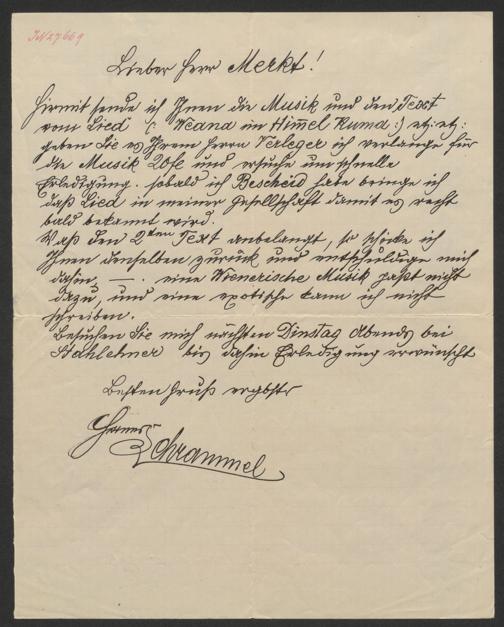 IN 27669
Lieber Herr Merkt!
Hirmit sende ich Ihnen die Musik und den Text
vom Lied (: Weana im Him̄el Kuma :) etz: etz:
geben Sie es Ihrem Herrn Verleger ich verlange für
die Musik 20 fl und ersuche um schnelle
Erledigung. sobald ich Bescheid habe bringe ich
daß Lied in meiner Gesellschaft damit es recht
bald bekannt wird.
Waß den 2ten Text anbelangt, so schicke ich
Ihnen denselben zurück und entschuldige mich
dahin, —. eine Wienerische Musik paßt nicht
dazu, und eine exotische kann ich nicht
schreiben.
Besuchen Sie mich nächsten Dinstag Abends bei
Stahlehner bis dahin Erledigung erwünscht
Besten Gruß ergbstr
Hanns Schrammel